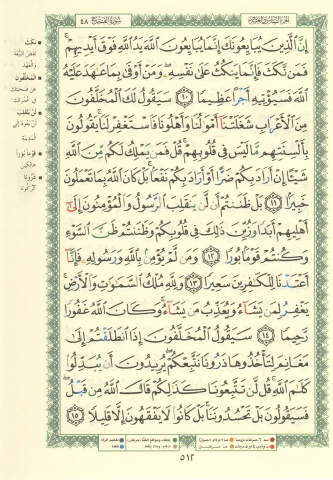 الجزء السادس والعشرون
سورة الفتح ٤٨
إِنَّ ٱلَّذِينَ يُبَايِعُونَكَ إِنَّمَا يُبَايِعُونَ ٱللَّهَ يَدُ ٱللَّهِ فَوْقَ أَيْدِيهِمْ
فَمَن نَّكَثَ فَإِنَّمَا يَنكُثُ عَلَىٰ نَفْسِهِۦ وَمَنْ أَوْفَىٰ بِمَا عَٰهَدَ عَلَيْهُ
ٱللَّهَ فَسَيُؤْتِيهِ أَجْرًا عَظِيمًا ١٠ سَيَقُولُ لَكَ ٱلْمُخَلَّفُونَ
مِنَ ٱلْأَعْرَابِ شَغَلَتْنَآ أَمْوَٰلُنَا وَأَهْلُونَا فَٱسْتَغْفِرْ لَنَا يَقُولُونَ
بِأَلْسِنَتِهِم مَّا لَيْسَ فِى قُلُوبِهِمْ قُلْ فَمَن يَمْلِكُ لَكُم مِّنَ ٱللَّهِ
شَيْـًٔا إِنْ أَرَادَ بِكُمْ ضَرًّا أَوْ أَرَادَ بِكُمْ نَفْعًۢا بَلْ كَانَ ٱللَّهُ بِمَا تَعْمَلُونَ
خَبِيرًۢا ١١ بَلْ ظَنَنتُمْ أَن لَّن يَنقَلِبَ ٱلرَّسُولُ وَٱلْمُؤْمِنُونَ إِلَىٰٓ
أَهْلِيهِمْ أَبَدًا وَزُيِّنَ ذَٰلِكَ فِى قُلُوبِكُمْ وَظَنَنتُمْ ظَنَّ ٱلسَّوْءِ
وَكُنتُمْ قَوْمًۢا بُورًا ١٢ وَمَن لَّمْ يُؤْمِنۢ بِٱللَّهِ وَرَسُولِهِۦ فَإِنَّآ
أَعْتَدْنَا لِلْكَٰفِرِينَ سَعِيرًا ١٣ وَلِلَّهِ مُلْكُ ٱلسَّمَٰوَٰتِ وَٱلْأَرْضِ
يَغْفِرُ لِمَن يَشَآءُ وَيُعَذِّبُ مَن يَشَآءُ وَكَانَ ٱللَّهُ غَفُورًا
رَّحِيمًا ١٤ سَيَقُولُ ٱلْمُخَلَّفُونَ إِذَا ٱنطَلَقْتُمْ إِلَىٰ
مَغَانِمَ لِتَأْخُذُوهَا ذَرُونَا نَتَّبِعْكُمْ يُرِيدُونَ أَن يُبَدِّلُوا۟
كَلَٰمَ ٱللَّهِ قُل لَّن تَتَّبِعُونَا كَذَٰلِكُمْ قَالَ ٱللَّهُ مِن قَبْلُ
فَسَيَقُولُونَ بَلْ تَحْسُدُونَنَا بَلْ كَانُوا۟ لَا يَفْقَهُونَ إِلَّا قَلِيلًا ١٥
نكث
نقض البيعة
والعهد
المخلفون
عن صحبتك
لن ينقلب
لن يعود إلى
المدينة
قوما بورا
هالكين
ذرونا
اتركونا
٥١٢